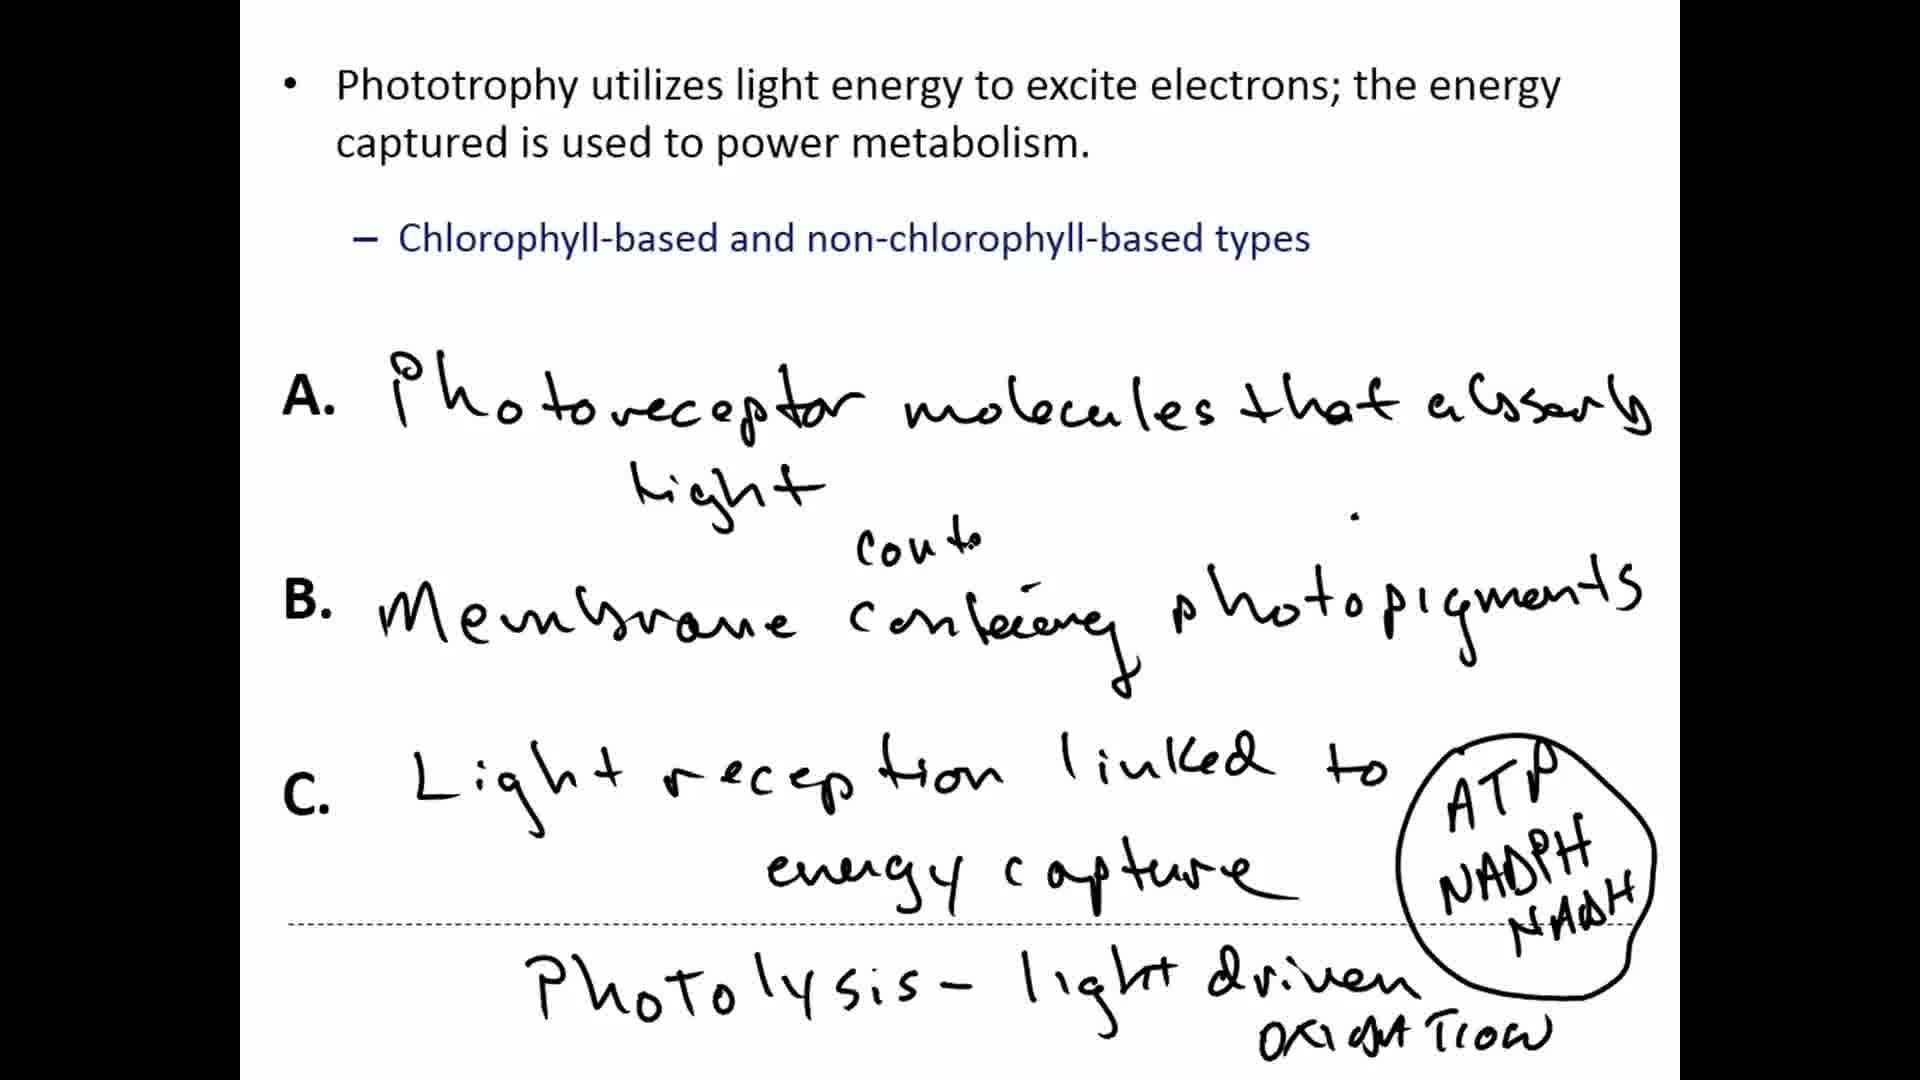 • Phototrophy utilizes light energy to excite electrons; the energy
captured is used to power metabolism.
– Chlorophyll-based and non-chlorophyll-based types
A. Photoreceptor molecules that absorb
light
conta
B. Membrane containing photopigments
C. Light reception linked to
energy capture
ATP
NADPH
NADH
Photolysis - light driven
OXIDATION